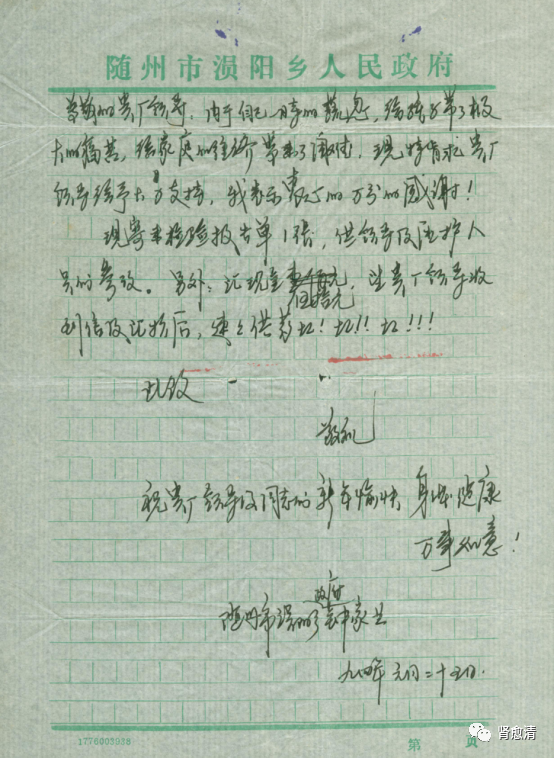 随州市涢阳乡人民政府
尊敬的贵厂领导,由于自己一时的疏忽,给病者带来了极
大的痛苦,给家庭的经济带来了困难,现特请求贵厂
领导给予大力支持,我表示衷心的万分的感谢!
现寄来检验报告单1张,供领导及医护人
员的参考。另外:汇现金
伍拾元,望贵厂领导收
到信及汇款后,速之供药
此致
敬礼
祝贵厂领导及同志的新年愉快 身体健康
万事如意!
政府
随州市涢阳乡
九四年元月二十五日.
1776003938
第 页
肾愈清